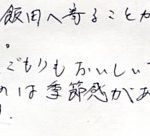 飯田へ寄ることか
。
ごもりもおいしい
は季節感があ